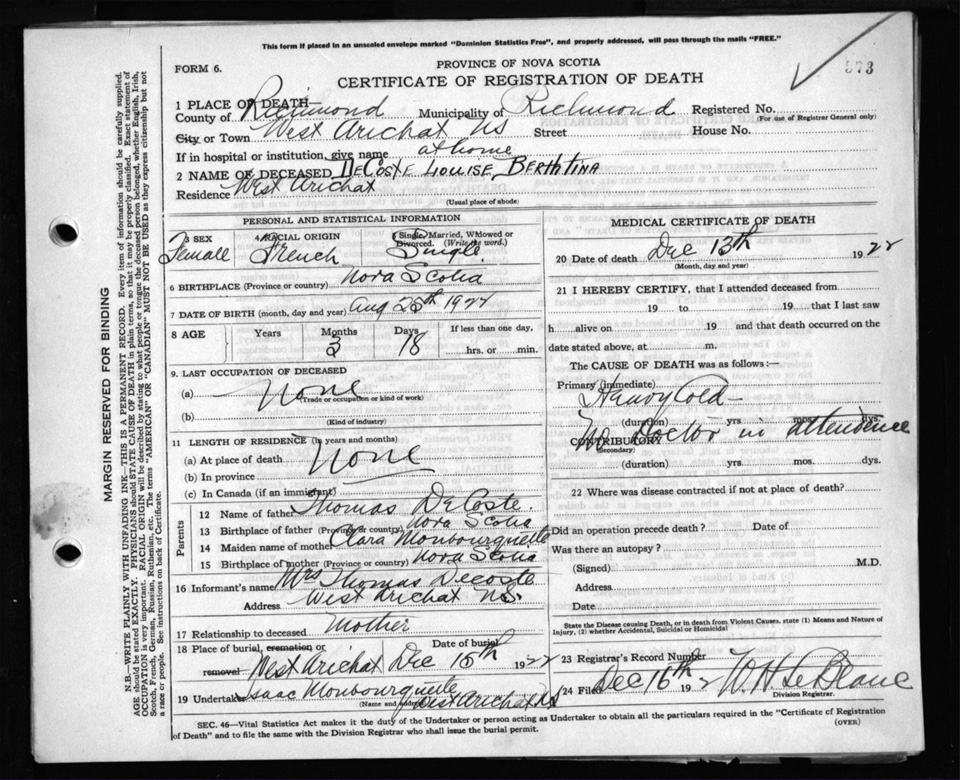 This form if placed in an unsealed envelope marked "Dominion Statistics Free", and properly addressed, will pass through the mails "FREE."
FORM 6.
PROVINCE OF NOVA SCOTIA
CERTIFICATE OF REGISTRATION OF DEATH
573
1 PLACE OF DEATH—
County of Richmond Municipality of Richmond Registered No.
(For use of Registrar General only)
City or Town West Arichat NS Street House No.
If in hospital or institution, give name at home
2 NAME OF DECEASED DeCoste Louise, Berthtina
Residence West Arichat
(Usual place of abode)
PERSONAL AND STATISTICAL INFORMATION
3 SEX 4 RACIAL ORIGIN 5 Single, Married, Widowed or Divorced. (Write the word.)
Female French Single
6 BIRTHPLACE (Province or country) Nova Scotia
7 DATE OF BIRTH (month, day and year) Aug 25th 1922
8 AGE Years Months Days If less than one day,
3 18 hrs. or min.
9. LAST OCCUPATION OF DECEASED
(a) None
(Trade or occupation or kind of work)
(b)
(Kind of industry)
11 LENGTH OF RESIDENCE (In years and months)
(a) At place of death None
(b) In province
(c) In Canada (if an immigrant)
Parents
12 Name of father Thomas DeCoste.
13 Birthplace of father (Province or country) Nova Scotia
14 Maiden name of mother Clara Monbourquette
15 Birthplace of mother (Province or country) Nova Scotia
16 Informant's name Mrs Thomas Decoste
Address West Arichat NS.
17 Relationship to deceased Mother
18 Place of burial, cremation or removal Date of burial
West Arichat Dec 15th 1922
19 Undertaker Isaac Monbourquette
(Name and address) West Arichat NS
MEDICAL CERTIFICATE OF DEATH
20 Date of death Dec 13th 1922
(Month, day and year)
21 I HEREBY CERTIFY, that I attended deceased from
19 to 19 that I last saw
h alive on 19 and that death occurred on the
date stated above, at m.
The CAUSE OF DEATH was as follows:—
Primary (immediate)
Heavy Cold —
(duration) yrs mos. dys.
CONTRIBUTORY
(Secondary)
No Doctor in attendence
(duration) yrs. mos. dys.
22 Where was disease contracted if not at place of death?
Did an operation precede death? Date of
Was there an autopsy?
(Signed) M.D.
Address
Date
State the Disease causing Death, or in death from Violent Causes, state (1) Means and Nature of
Injury, (2) whether Accidental, Suicidal or Homicidal
23 Registrar's Record Number
24 Filed Dec 16th 1922 W H LeBlanc
Division Registrar.
SEC. 46—Vital Statistics Act makes it the duty of the Undertaker or person acting as Undertaker to obtain all the particulars required in the "Certificate of Registration
of Death" and to file the same with the Division Registrar who shall issue the burial permit.
(OVER)
MARGIN RESERVED FOR BINDING
N.B.—WRITE PLAINLY WITH UNFADING INK—THIS IS A PERMANENT RECORD. Every item of information should be carefully supplied.
AGE should be stated EXACTLY. PHYSICIANS should STATE CAUSE OF DEATH in plain terms, so that it may be properly classified. Exact statement of
OCCUPATION is very important. RACIAL ORIGIN will be described by stating to what people or tongue the deceased person belonged, whether English, Irish,
Scotch, French, German, Russian, Ruthenian, etc. The terms "AMERICAN" OR "CANADIAN" MUST NOT BE USED as they express citizenship but not
a race or people. See instructions on back of Certificate.